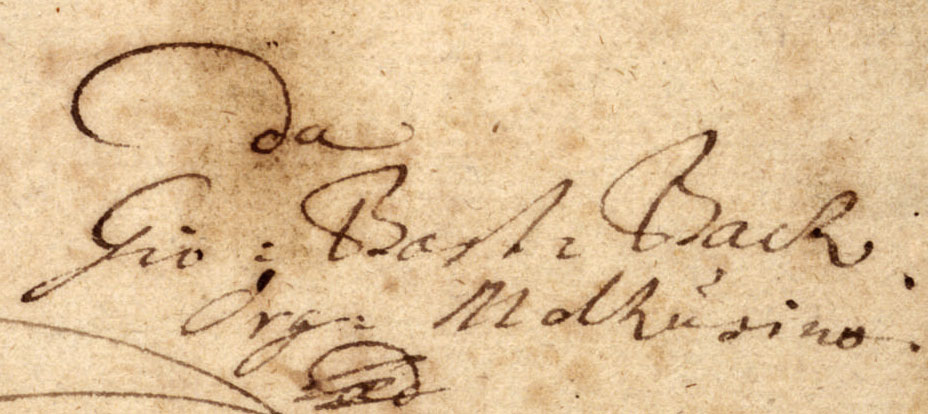 da
Gio: Bast: Bach.
Org: Molhusino.